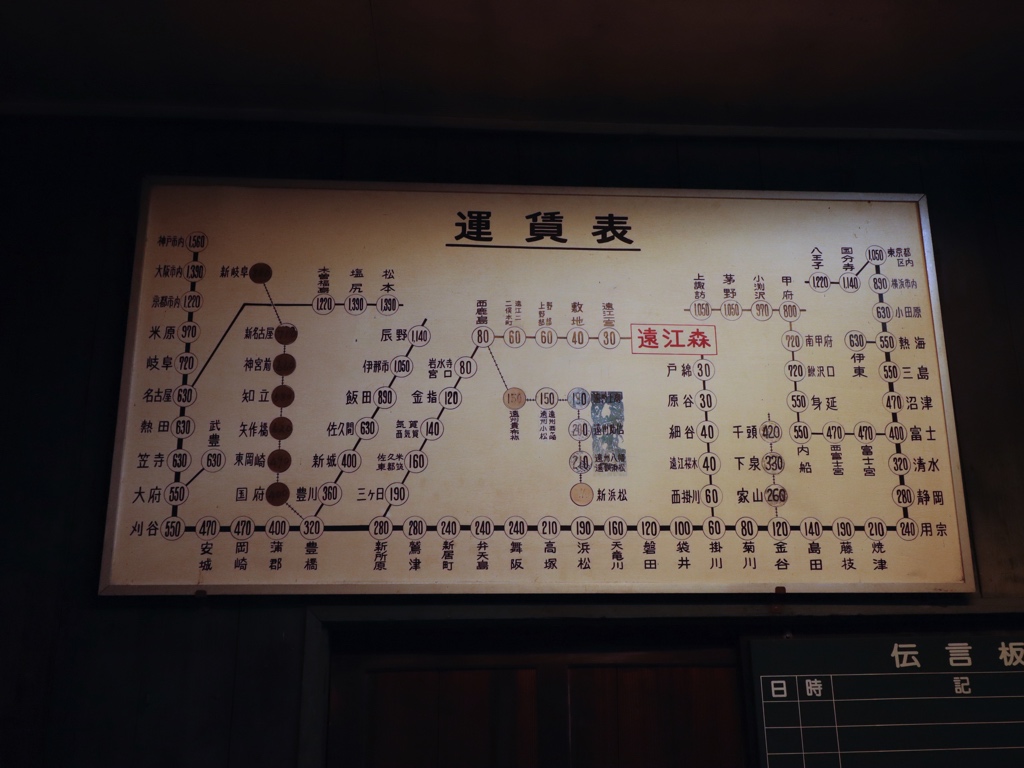 運賃表
神戸市内 1,560
大阪市内 1,390
京都市内 1,220
米原 970
岐阜 720
名古屋 630
熱田 630
笠寺 630
武豊 630
大府 550
刈谷 550
新岐阜
新名古屋
神宮前
知立
矢作橋
東岡崎
国府
木曽福島 1,220
塩尻 1,390
松本 1,390
辰野 1,140
伊那市 1,050
飯田 890
佐久間 630
新城 400
豊川 360
岩水寺
宮口 80
金指 120
気賀
西気賀 140
佐久米
東都筑 160
三ヶ日 190
西鹿島 80
遠江二俣
二俣本町 60
上野部
野部 60
敷地 40
遠江一宮 30
遠江森
遠州貴布祢 150
遠州小松 150
190
200
210
新浜松
戸綿 30
原谷 30
細谷 40
遠江桜木 40
西掛川 60
上諏訪 1,050
茅野 1,050
小渕沢 970
甲府 800
南甲府 720
鰍沢口 720
身延 550
内船 550
西富士宮 470
富士宮 470
千頭 420
下泉 330
家山 260
八王子 1,220
国分寺 1,140
東京都区内 1,050
横浜市内 890
小田原 630
熱海 550
伊東 630
三島 550
沼津 470
富士 400
清水 320
静岡 280
用宗 240
安城 470
岡崎 470
蒲郡 400
豊橋 320
新所原 280
鷲津 280
新居町 240
弁天島 240
舞阪 240
高塚 210
浜松 190
天竜川 160
磐田 120
袋井 100
掛川 60
菊川 80
金谷 120
島田 140
藤枝 190
焼津 210
伝言板
日 時 記